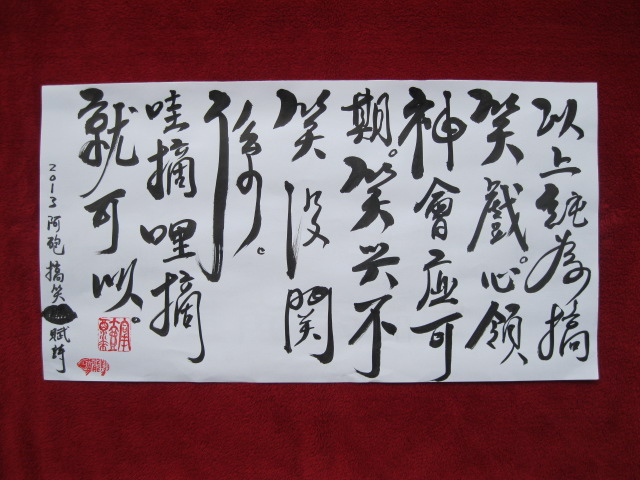 以上純為搞
笑戲。心領
神會應可
期。笑與不
笑沒關
係。
哇摘哩摘
就可以。
2013 阿砲 搞笑 賦詩